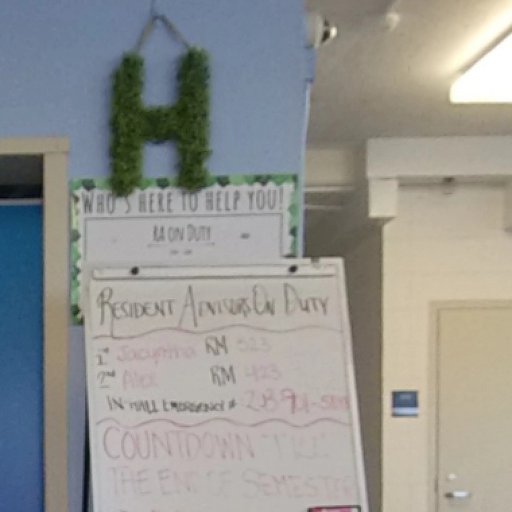 H
WHO'S HERE TO HELP YOU!
RA ON DUTY
RESIDENT ADVISORS ON DUTY
1st Jacyntha RM 523
2nd Alex RM 423
IN HALL EMERGENCY #
COUNTDOWN TILL
THE END OF SEMESTER